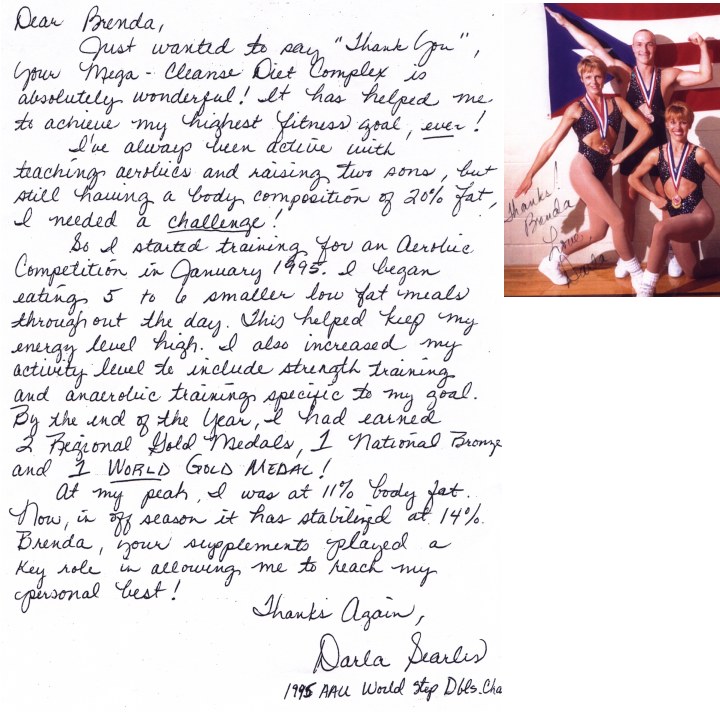 Dear Brenda,
Just wanted to say "Thank You",
Your Mega-Cleanse Diet Complex is
absolutely wonderful! It has helped me
to achieve my highest fitness goal, ever!
I've always been active with
teaching aerobics and raising two sons, but
still having a body composition of 20% fat,
I needed a challenge!
So I started training for an Aerobic
Competition in January 1995. I began
eating 5 to 6 smaller low fat meals
throughout the day. This helped keep my
energy level high. I also increased my
activity level to include strength training
and anaerobic training specific to my goal.
By the end of the Year, I had earned
2 Regional Gold Medals, 1 National Bronze
and 1 WORLD GOLD MEDAL!
At my peak, I was at 11% body fat.
Now, in off season it has stabilized at 14%.
Brenda, your supplements played a
key role in allowing me to reach my
personal best!
Thanks Again,
Darla Searles
1995 AAU World Step Dbls. Cha
Thanks!
Brenda
Love,
Darla